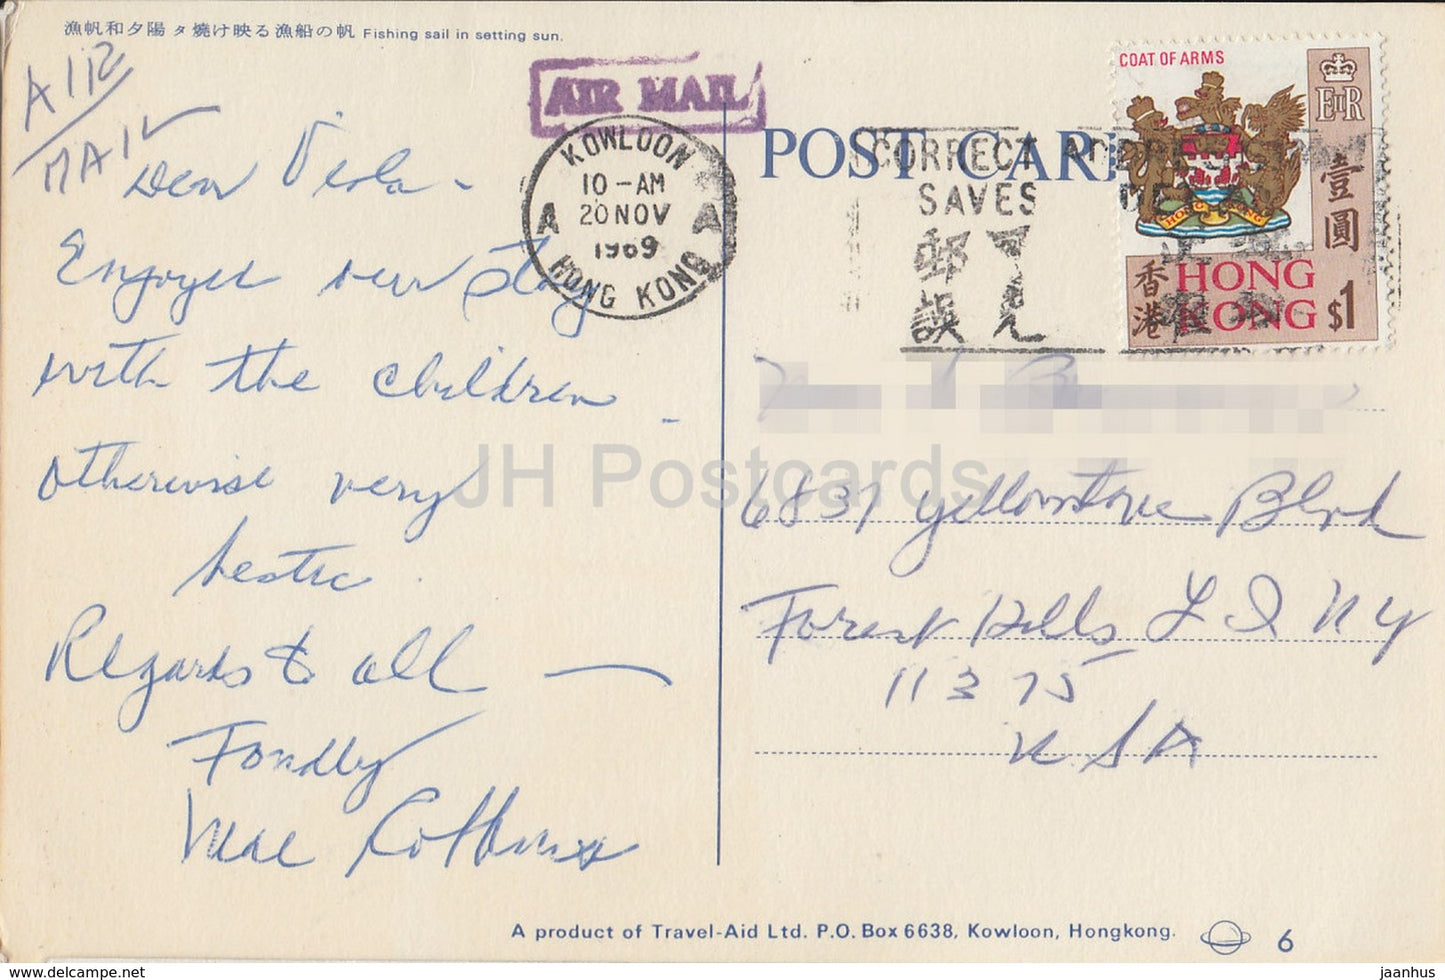 漁帆和夕陽 タ燒け映る漁船の帆 Fishing sail in setting sun.
AIR
MAIL
Dear Viola -
Enjoyed our stay
with the children -
otherwise very
hectic.
Regards to all —
Fondly
Mae
AIR MAIL
KOWLOON
10-AM
A 20 NOV A
1969
HONG KONG
POST CARD
CORRECT ADDRESS
SAVES DELAY
郵
誤
COAT OF ARMS
EIIR
HONG KONG
壹圓
香港
HONG
KONG
$1
6837 Yellowstone Blvd
Forest Hills L I N Y
11375
USA
JH Postcards
A product of Travel-Aid Ltd. P.O. Box 6638, Kowloon, Hongkong. 6
hippostcard.com/store/jh-postcards.myshopify.net
jaanhus